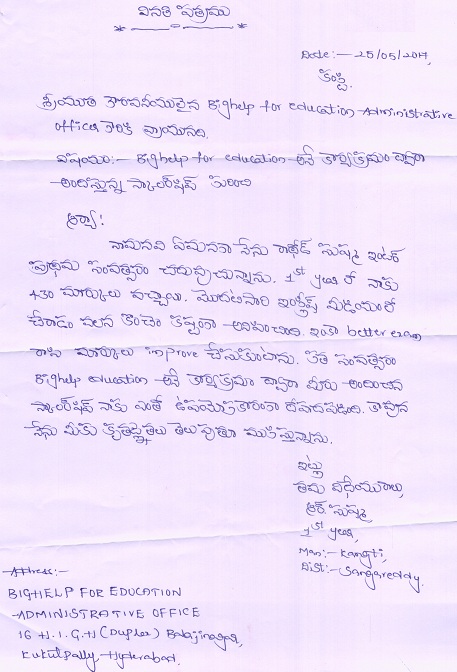 వినతి పత్రము
Date:- 25/05/2017,
కంగ్టి.
శ్రీయుత గౌరవనీయులైన Bighelp for education Administrative
office గారికి వ్రాయునది.
విషయం:- Bighelp for education అనే కార్యక్రమం ద్వారా
అందిస్తున్న స్కాలర్‌షిప్ గురించి
ఆర్యా!
నామనవి ఏమనగా నేను రాథోడ్ సుష్మ ఇంటర్
ప్రథమ సంవత్సరం చదువుచున్నాను. 1st year లో నాకు
430 మార్కులు వచ్చాయి. మొదటిసారి ఇంగ్లీష్ మీడియంలో
చేరడం వలన కొంచెం కష్టంగా అనిపించింది. ఇంకా better exam
రాసి మార్కులు improve చేసుకుంటాను. గత సంవత్సరం
Bighelp education అనే కార్యక్రమం ద్వారా మీరు అందించిన
స్కాలర్‌షిప్ నాకు ఎంతో ఉపయోగకారంగా దోహదపడింది. కావున
నేను మీకు కృతజ్ఞతలు తెలుపుతూ ముగిస్తున్నాను.
ఇట్లు
తమ విధేయురాలు,
ఆర్. సుష్మ
1st year,
Man:- Kangti,
Dist:- Sangareddy.
Address:-
BIGHELP FOR EDUCATION
ADMINISTRATIVE OFFICE
16 H.I.G.H (Duplex) Balajinagar,
Kukutpally, Hyderabad.